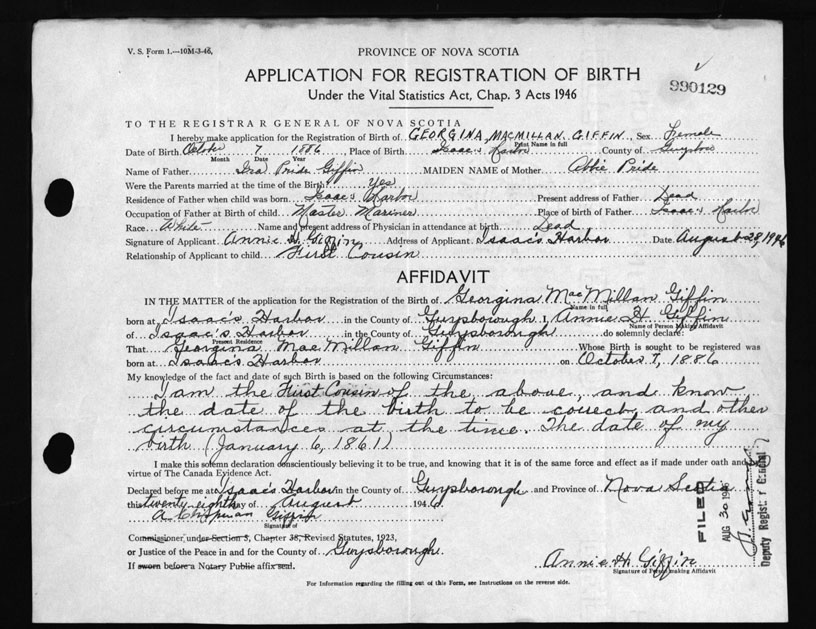 V. S. Form 1.—10M-3-46,
PROVINCE OF NOVA SCOTIA
APPLICATION FOR REGISTRATION OF BIRTH
990129
Under the Vital Statistics Act, Chap. 3 Acts 1946
TO THE REGISTRAR GENERAL OF NOVA SCOTIA
I hereby make application for the Registration of Birth of GEORGINA MACMILLAN GIFFIN, Sex Female
Print Name in full
Date of Birth October 7 1886, Place of Birth Isaac's Harbor County of Guysboro
Month Date Year
Name of Father Ira Pride Giffin MAIDEN NAME of Mother Abbie Pride
Were the Parents married at the time of the Birth? Yes
Residence of Father when child was born Isaac's Harbor Present address of Father Dead
Occupation of Father at Birth of child Master Mariner Place of birth of Father Isaac's Harbor
Race White Name and present address of Physician in attendance at birth Dead
Signature of Applicant Annie H. Giffin Address of Applicant Isaac's Harbor Date August 28, 1946
Relationship of Applicant to child First Cousin
AFFIDAVIT
IN THE MATTER of the application for the Registration of the Birth of Georgina MacMillan Giffin
Name in full
born at Isaac's Harbor in the County of Guysborough I, Annie H. Giffin
Name of Person Making Affidavit
of Isaac's Harbor in the County of Guysborough do solemnly declare:
Present Residence
That Georgina MacMillan Giffin Whose Birth is sought to be registered was
born at Isaac's Harbor on October 7, 1886
My knowledge of the fact and date of such Birth is based on the following Circumstances:
I am the First Cousin of the above, and know
the date of the birth to be correct, and other
circumstances at the time. The date of my
birth (January 6, 1861)
I make this solemn declaration conscientiously believing it to be true, and knowing that it is of the same force and effect as if made under oath and by
virtue of The Canada Evidence Act.
Declared before me at Isaac's Harbor in the County of Guysborough and Province of Nova Scotia
this twenty eighth day of August 1946
A Chapman Giffin
Signature of
Commissioner under Section 3, Chapter 38, Revised Statutes, 1923,
or Justice of the Peace in and for the County of Guysborough.
If sworn before a Notary Public affix seal.
Annie H. Giffin
Signature of Person making Affidavit
For Information regarding the filling out of this Form, see Instructions on the reverse side.
FILED
AUG 30 1946
Deputy Registrar General